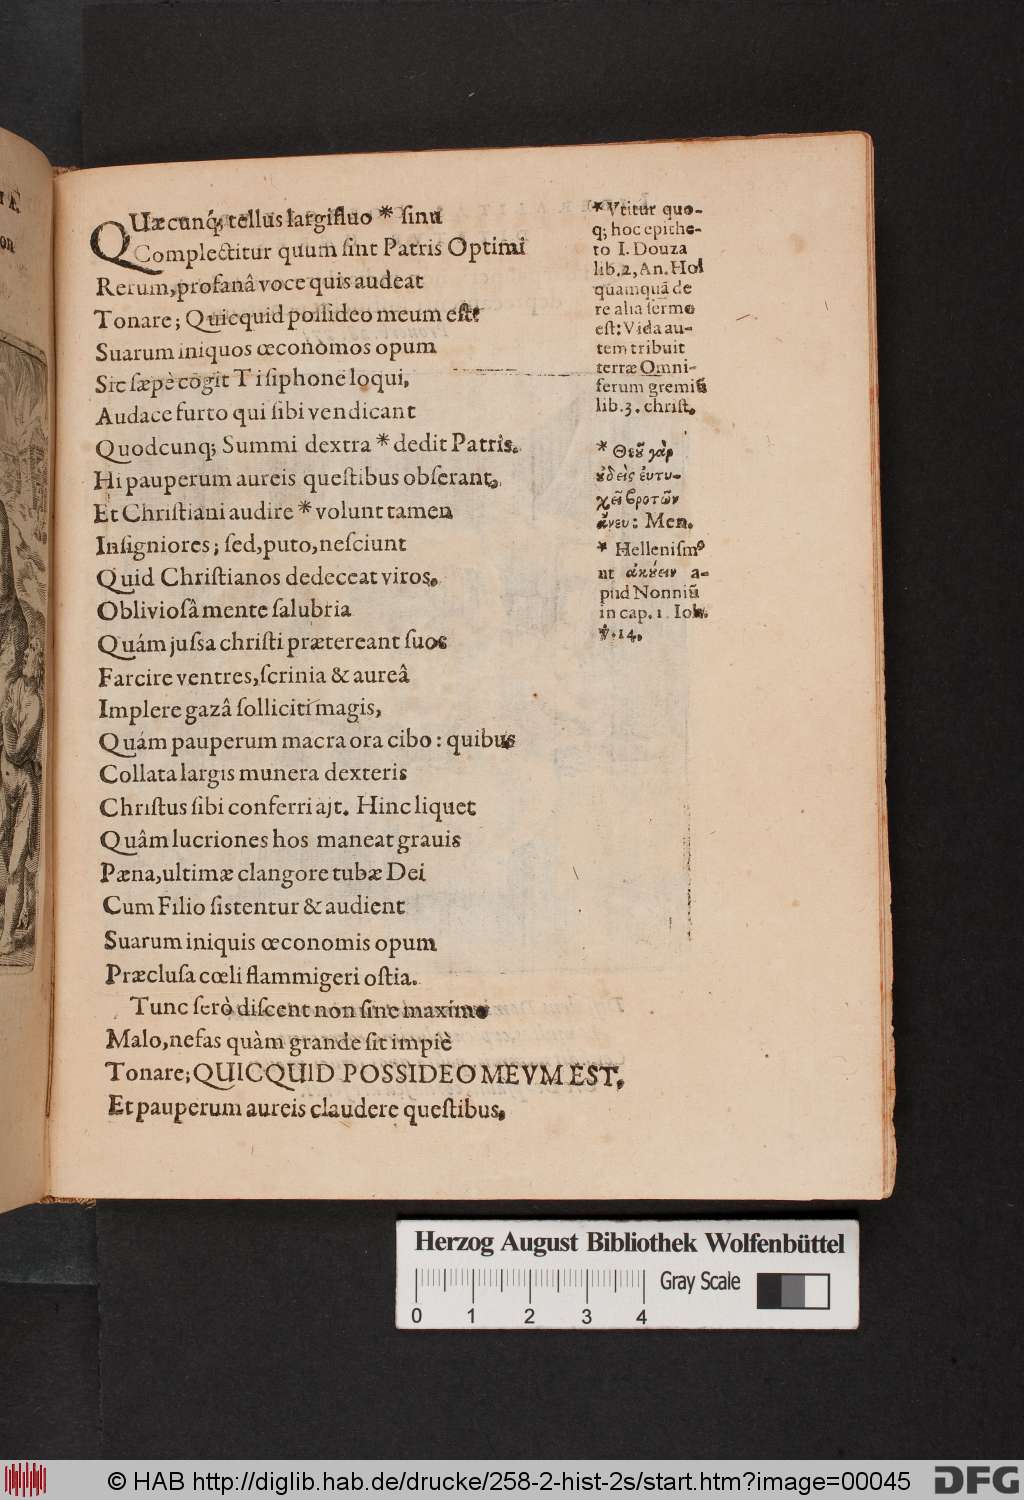 QUæcunq́; tellus largifluo * sinu
Complectitur quum sint Patris Optimi
Rerum, profanâ voce quis audeat
Tonare; Quicquid possideo meum est?
Suarum iniquos œconomos opum
Sic sæpè cogit Tisiphone loqui,
Audace furto qui sibi vendicant
Quodcunq; Summi dextra * dedit Patris.
Hi pauperum aureis questibus obserant,
Et Christiani audire * volunt tamen
Insigniores; sed, puto, nesciunt
Quid Christianos dedeceat viros,
Obliviosâ mente salubria
Quám jussa christi prætereant suos
Farcire ventres, scrinia & aureâ
Implere gazâ solliciti magis,
Quám pauperum macra ora cibo: quibus
Collata largis munera dexteris
Christus sibi conferri ajt. Hinc liquet
Quâm lucriones hos maneat gravis
Pæna, ultimæ clangore tubæ Dei
Cum Filio sistentur & audient
Suarum iniquis œconomis opum
Præclusa cœli flammigeri ostia.
Tunc serò discent non sine maximo
Malo, nefas quàm grande sit impiè
Tonare; QUICQUID POSSIDEO MEVM EST,
Et pauperum aureis claudere questibus,
* Vtitur quo-
q; hoc epithe-
to I. Douza
lib. 2, An. Hol
quamquā de
re alia sermo
est: Vida au-
tem tribuit
terræ Omni-
ferum gremiū
lib. 3. christ.
* Θεοῦ γὰρ
οὐδεὶς ἐυτυ-
χεῖ βροτῶν
ἄνευ: Men.
* Hellenism⁹
ut ἀκούειν a-
pud Nonniū
in cap. 1. Ioh.
℣. 14.
Herzog August Bibliothek Wolfenbüttel
Gray Scale
0 1 2 3 4
© HAB http://diglib.hab.de/drucke/258-2-hist-2s/start.htm?image=00045
DFG